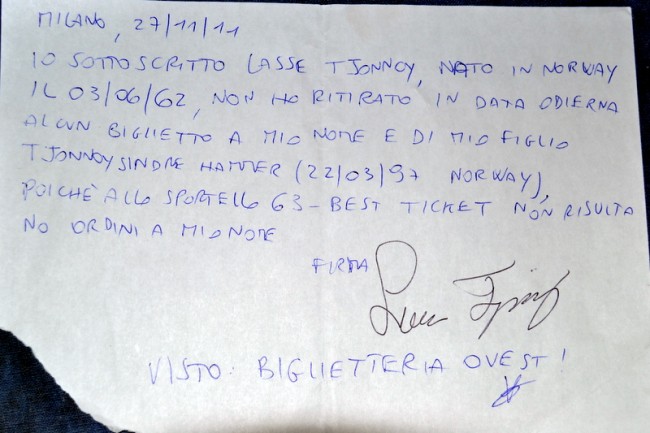 MILANO, 27/11/11
IO SOTTOSCRITTO LASSE TJONNOY, NATO IN NORWAY
IL 03/06/62, NON HO RITIRATO IN DATA ODIERNA
ALCUN BIGLIETTO A MIO NOME E DI MIO FIGLIO
TJONNOY SINDRE HAMMER (22/03/97 NORWAY),
POICHÈ ALLO SPORTELLO 63 - BEST TICKET NON RISULTA
NO ORDINI A MIO NOME
FIRMA
VISTO: BIGLIETTERIA OVEST 1